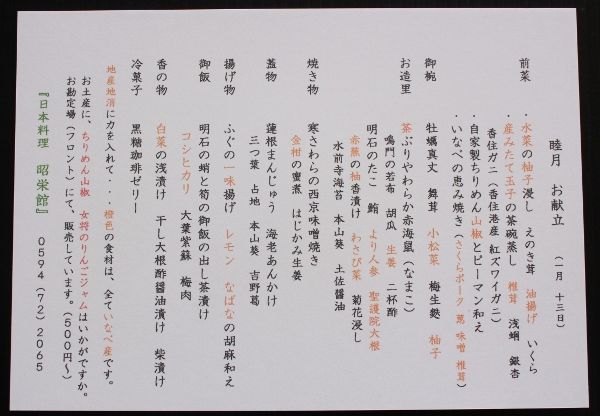 睦月 お献立 (一月 十三日)
前菜 ・水菜の柚子浸し えのき茸 油揚げ いくら
・産みたて玉子の茶碗蒸し 椎茸 浅蜊 銀杏
香住ガニ(香住港産 紅ズワイガニ)
・自家製ちりめん山椒とピーマン和え
・いなべの恵み焼き(さくらポーク 葱 味噌 椎茸)
御椀 牡蠣真丈 舞茸 小松菜 梅生麩 柚子
お造里 茶ぶりやわらか赤海鼠(なまこ)
鳴門の若布 胡瓜 生姜 二杯酢
明石のたこ 鮪 より人参 聖護院大根
赤蕪の柚香漬け わさび菜 菊花浸し
水前寺海苔 本山葵 土佐醤油
焼き物 寒さわらの西京味噌焼き
金柑の蜜煮 はじかみ生姜
蓋物 蓮根まんじゅう 海老あんかけ
三つ葉 占地 本山葵 吉野葛
揚げ物 ふぐの一味揚げ レモン なばなの胡麻和え
御飯 明石の蛸と筍の御飯の出し茶漬け
コシヒカリ 大葉紫蘇 梅肉
香の物 白菜の浅漬け 干し大根酢醤油漬け 柴漬け
冷菓子 黒糖珈琲ゼリー
地産地消に力を入れて・・・橙色の食材は、全ていなべ産です。
お土産に、ちりめん山椒 女将のりんごジャムはいかがですか。
お勘定場(フロント)にて、販売しています。(500円〜)
『日本料理 昭栄館』 0594(72)2065